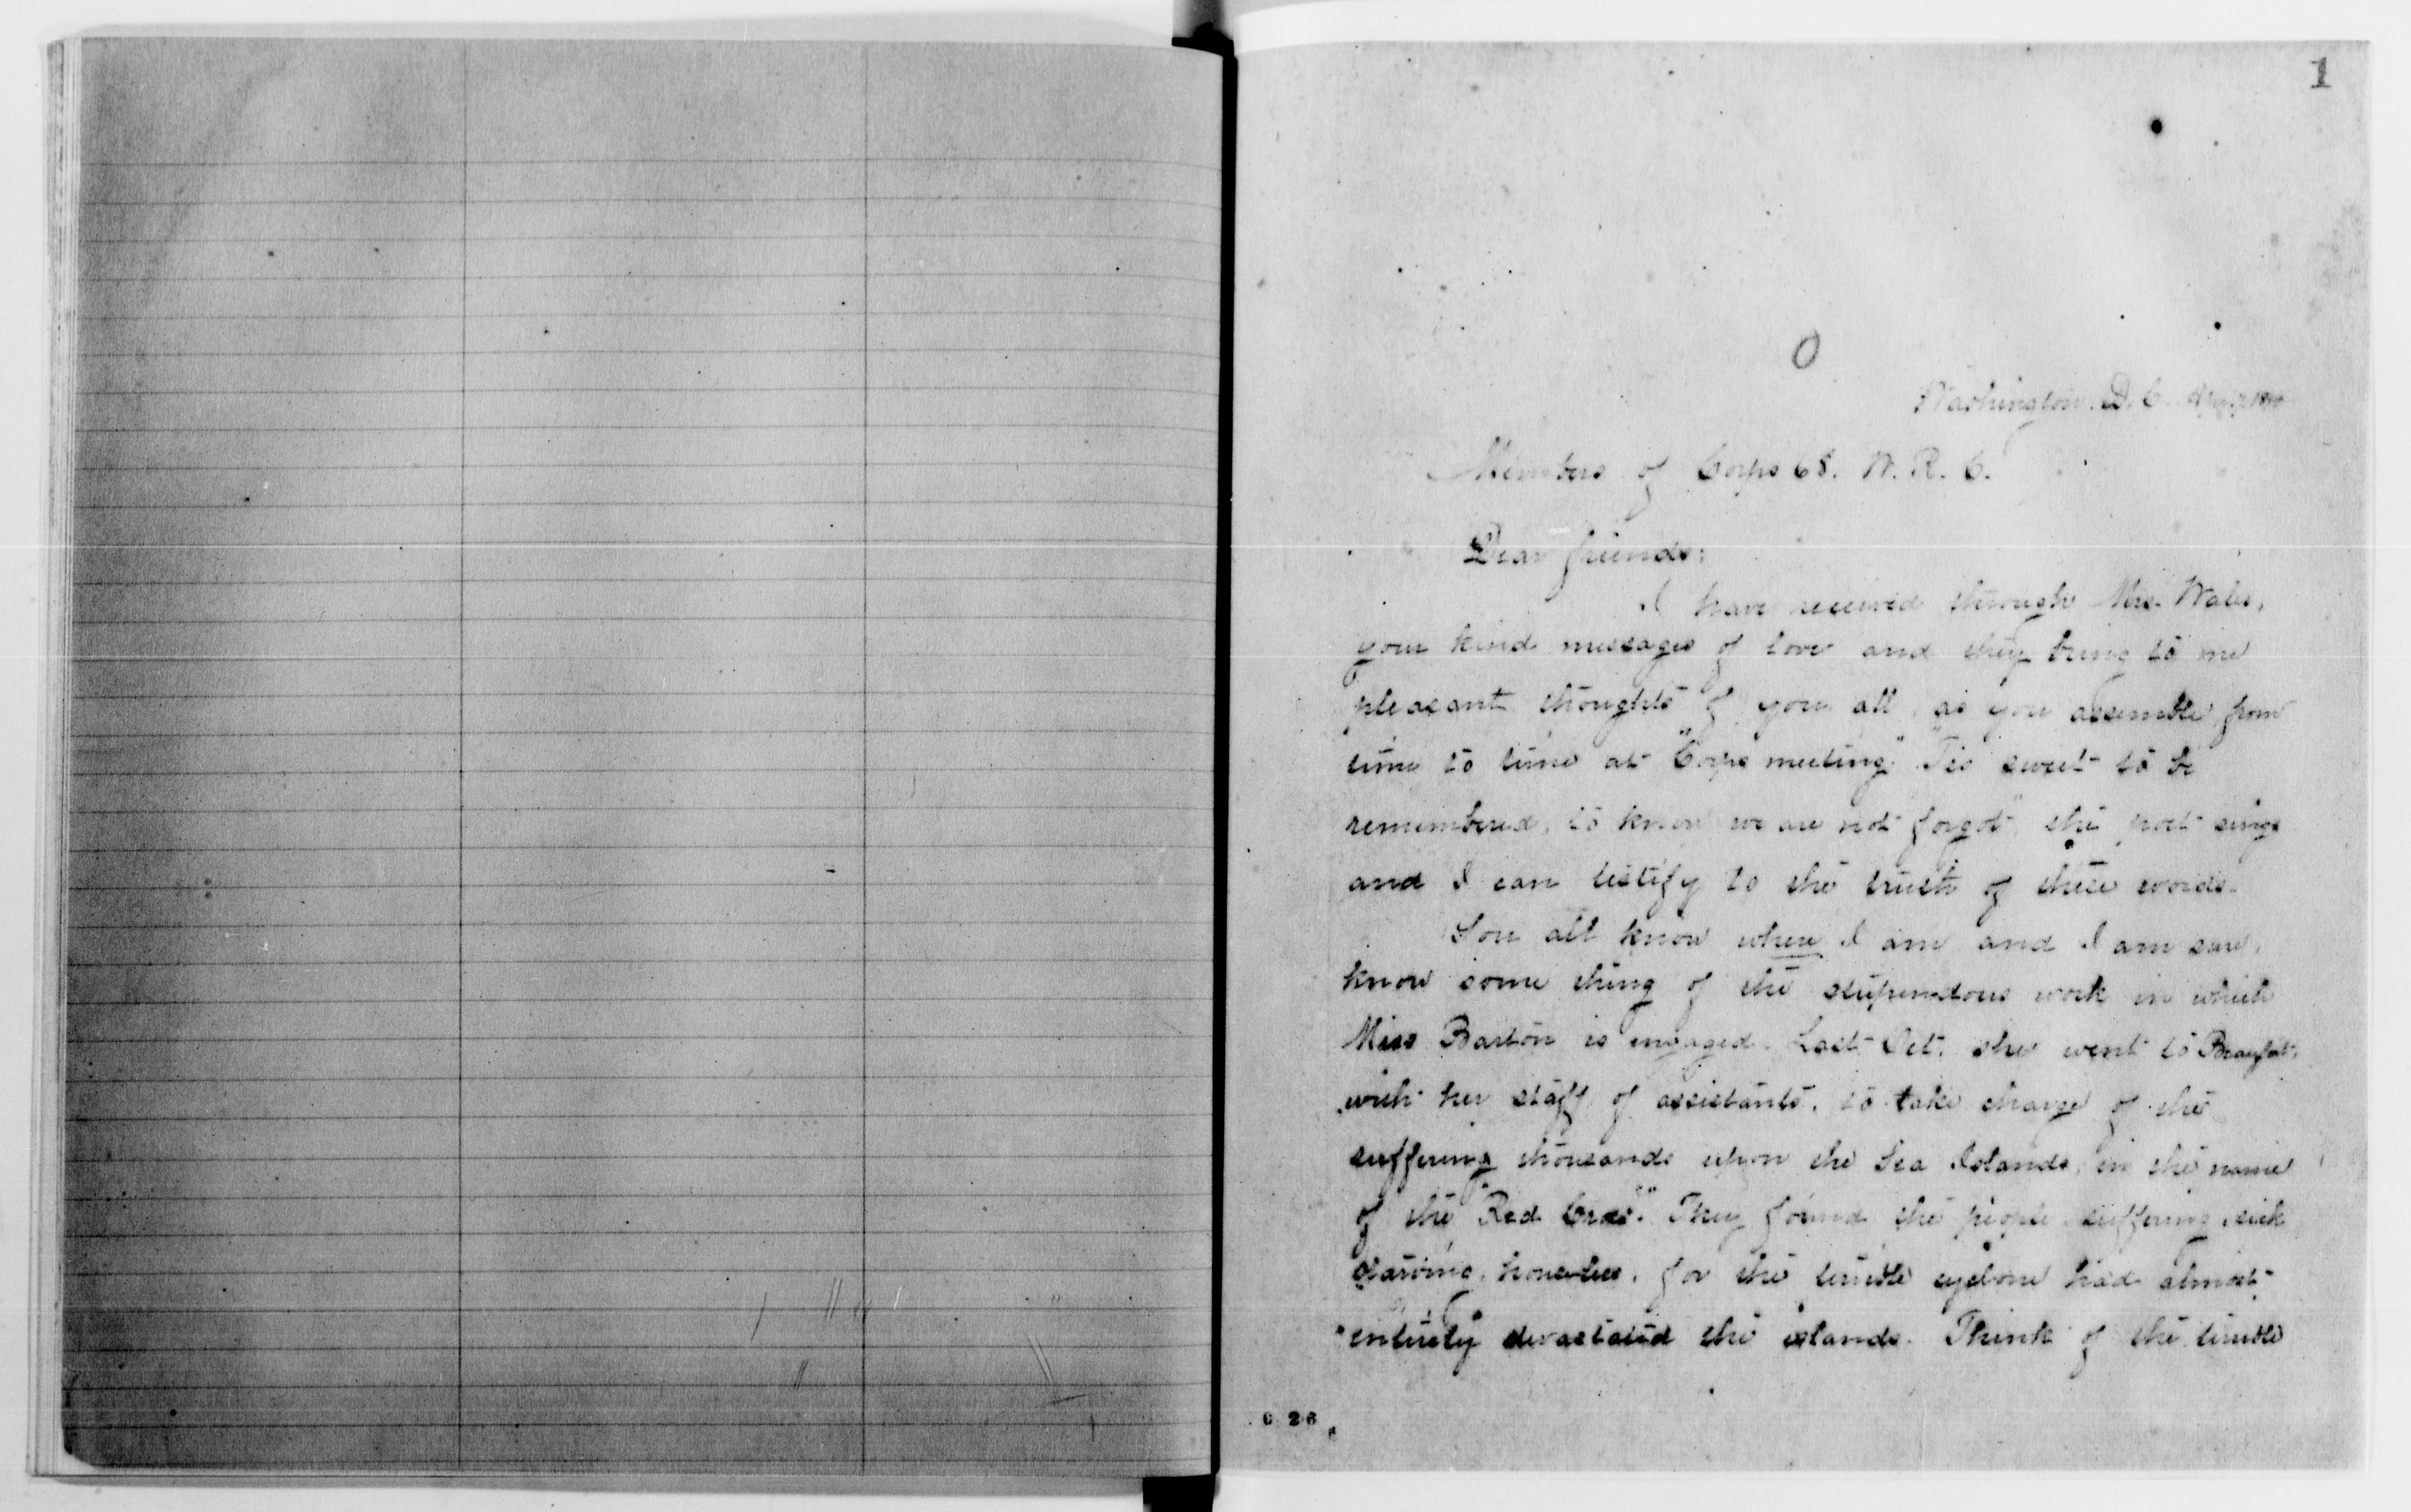 1
O
Washington. D. C.
Members of Corps 68. W. R. C.
Dear friends:
I have received through Mrs. Wales,
your kind messages of love and they bring to me
pleasant thoughts of you all, as you assemble from
time to time at "Corps meeting." "Tis sweet to be
remembered, to know we are not forgot", the poet sings
and I can testify to the truth of these words.
You all know where I am and I am sure,
know some thing of the stupendous work in which
Miss Barton is engaged. Last Oct. she went to Beaufort,
with her staff of assistants, to take charge of the
suffering thousands upon the Sea Islands, in the name
of the "Red Cross." They found the people suffering, sick
starving, homeless, for the terrible cyclone had almost
entirely devastated the islands. Think of the terrible
C 26